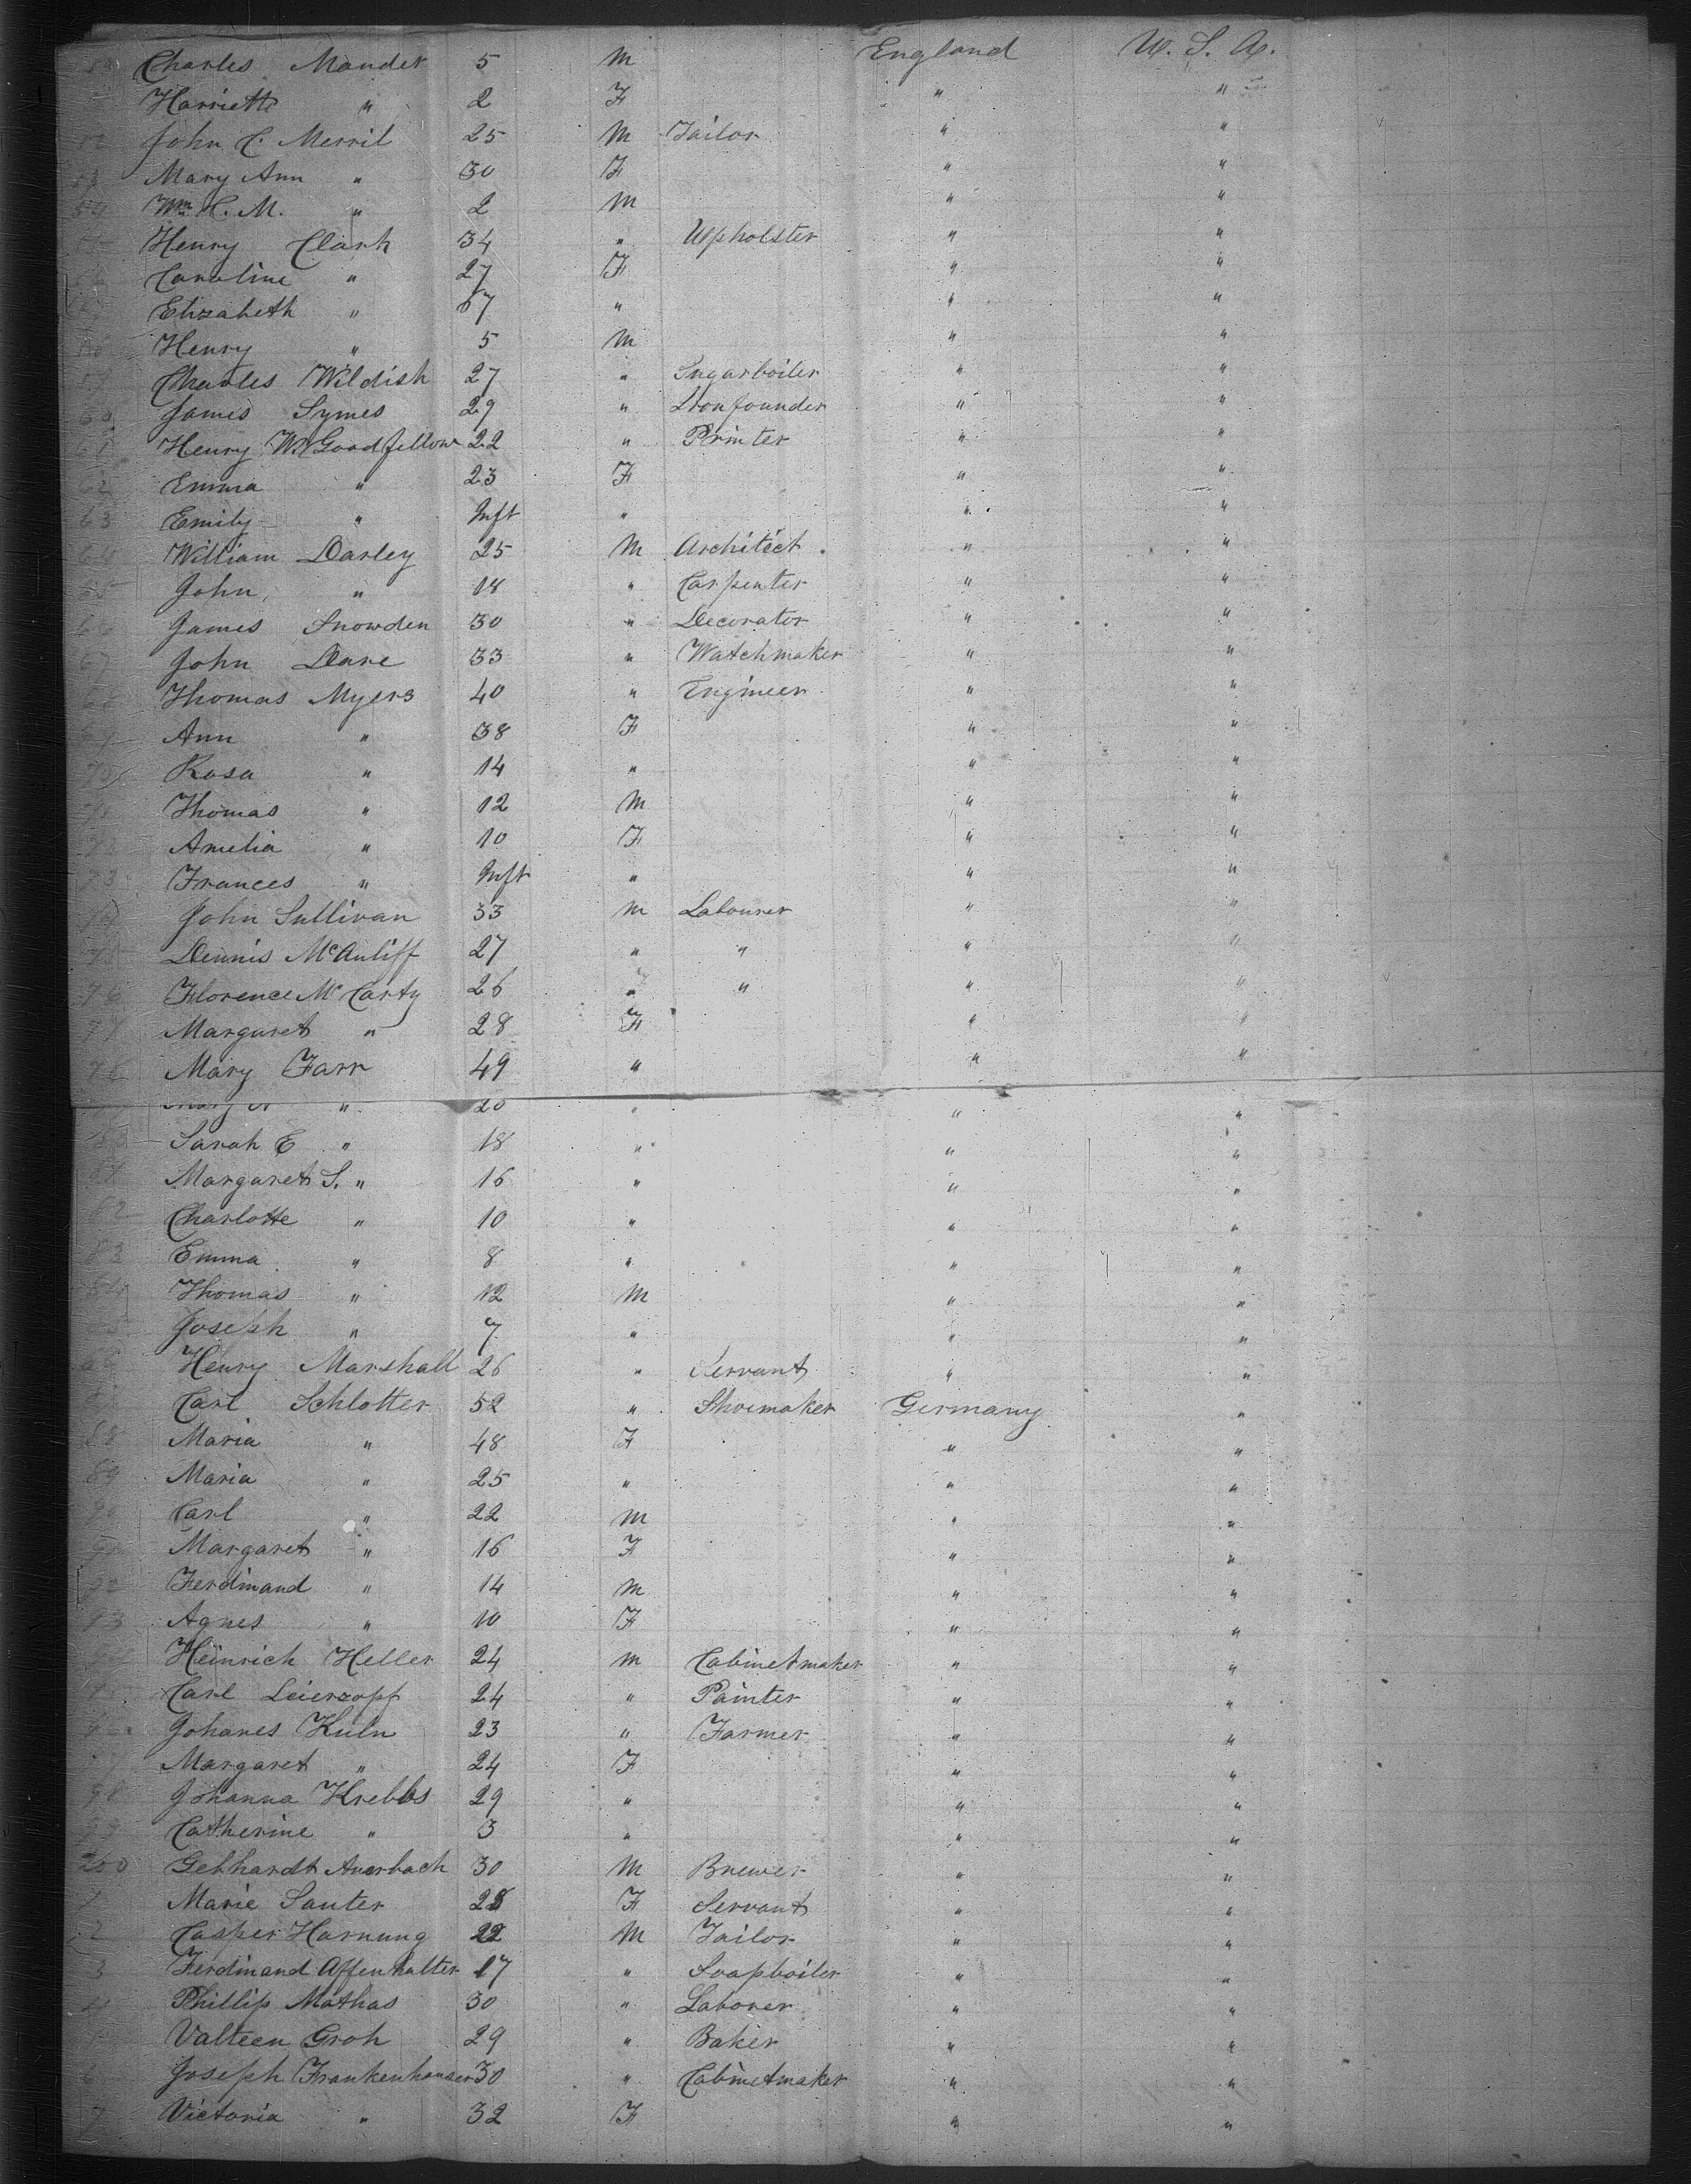 Charles Mander 5 M England U. S. A.
Harriett " 2 F " "
52 John C. Merril 25 M Tailor " "
53 Mary Ann " 30 F " "
54 Wm H. M. " 2 M " "
Henry Clark 34 " Upholster " "
Caroline " 27 F " "
Elizabeth " 67 " " "
Henry " 5 M " "
Charles Wildish 27 " Sugarboiler " "
60 James Symes 29 " Ironfounder " "
61 Henry W. Goodfellow 22 " Printer " "
62 Emma " 23 F " "
63 Emily " Inft " " "
64 William Darley 25 M Architect " "
65 John " 18 " Carpenter " "
66 James Snowden 30 " Decorator " "
67 John Dare 33 " Watchmaker " "
68 Thomas Myers 40 " Engineer " "
69 Ann " 38 F " "
70 Rosa " 14 " " "
71 Thomas " 12 M " "
72 Amelia " 10 F " "
73 Frances " Inft " " "
74 John Sullivan 33 M Labourer " "
75 Dennis McAuliff 27 " " " "
76 Florence McCarty 26 " " " "
77 Margaret " 28 F " "
78 Mary Farr 49 " " "
" 20 " " "
80 Sarah E " 18 " " "
81 Margaret S. " 16 " " "
82 Charlotte " 10 " " "
83 Emma " 8 " " "
84 Thomas " 12 M " "
Joseph " 7 " " "
86 Henry Marshall 26 " Servant " "
Carl Schlotter 52 " Shoemaker Germany "
88 Maria " 48 F " "
89 Maria " 25 " " "
90 Carl " 22 M " "
91 Margaret " 16 F " "
92 Ferdinand " 14 M " "
93 Agnes " 10 F " "
94 Heinrich Heller 24 M Cabinetmaker " "
Carl Leierzopf 24 " Painter " "
96 Johanes Kuln 23 " Farmer " "
97 Margaret " 24 F " "
98 Johanna Krebbs 29 " " "
99 Catherine " 3 " " "
200 Gebhardt Auerbach 30 M Brewer " "
1 Marie Sauter 28 F Servant " "
2 Casper Hornung 22 M Tailor " "
3 Ferdinand Affenhalter 17 " Soapboiler " "
4 Phillip Mathas 30 " Laborer " "
Valteen Groh 29 " Baker " "
6 Joseph Frankenhauser 30 " Cabinetmaker " "
7 Victoria " 32 F " "